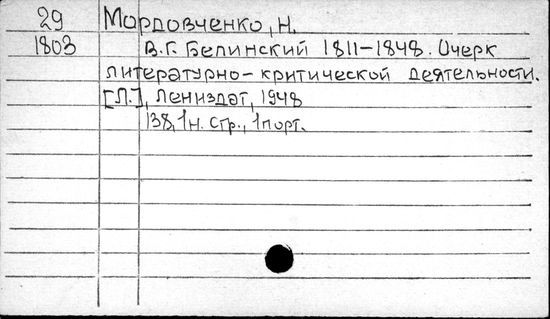 29 Мордовченко, Н.
1803 В.Г. Белинский 1811-1848. Очерк
литературно-критической деятельности.
[Л.], Лениздат, 1948
138, 1 н. стр., 1 порт.